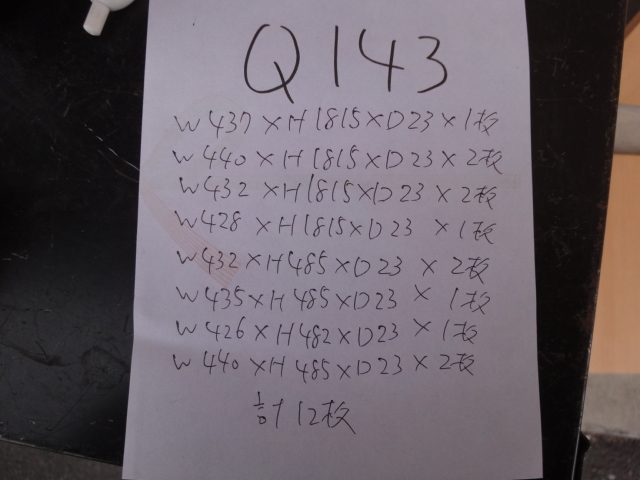 Q143
W437×H1815×D23×1枚
W440×H1815×D23×2枚
W432×H1815×D23×2枚
W428×H1815×D23×1枚
W432×H485×D23×2枚
W435×H485×D23×1枚
W426×H482×D23×1枚
W440×H485×D23×2枚
計12枚